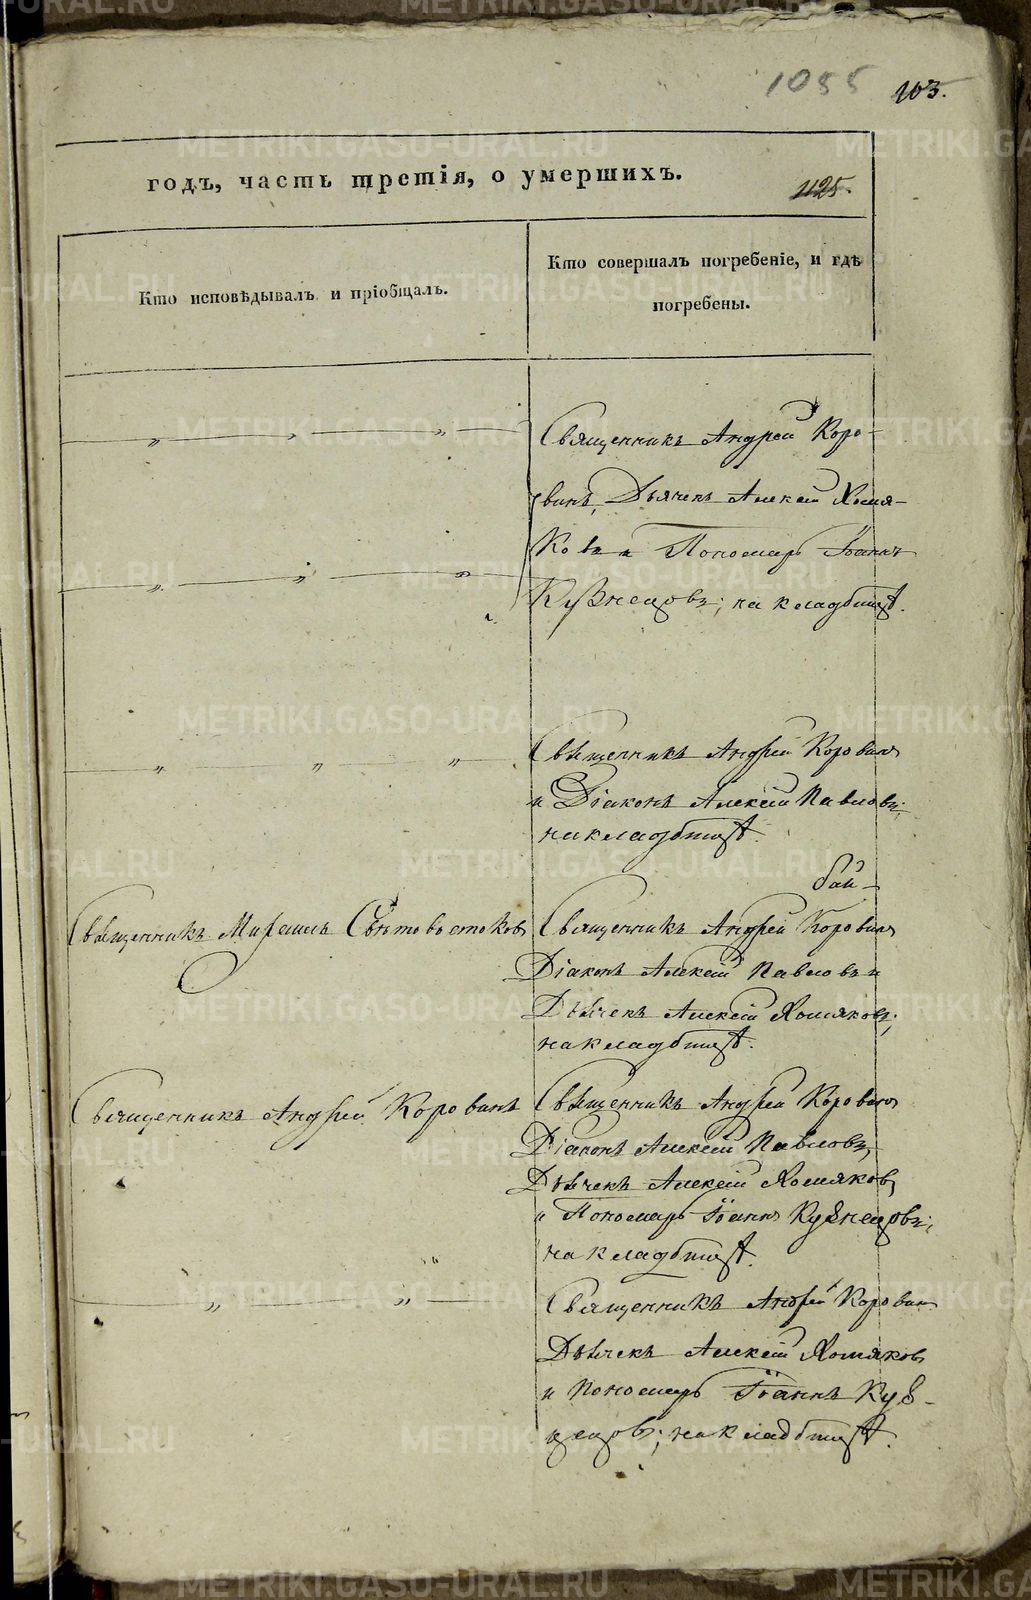 1055 103.
годъ, часть третія, о умершихъ.
1125.
Кто исповѣдывалъ и пріобщалъ.
Кто совершалъ погребеніе, и гдѣ
погребены.
Священникъ Андрей Коро-
винъ, Дьячекъ Алексѣй Хомя-
ковъ и Пономарь Іоаннъ
Кузнецовъ; на кладбищѣ.
Священникъ Андрей Коровинъ
и Діаконъ Алексѣй Павловъ;
на кладбищѣ.
Священникъ Световостоковъ
Священникъ Андрей Коровинъ
Діаконъ Алексѣй Павловъ и
Дьячекъ Алексѣй Хомяковъ;
на кладбищѣ.
Священникъ Андрей Коровинъ
Священникъ Андрей Коровинъ
Діаконъ Алексѣй Павловъ,
Дьячекъ Алексѣй Хомяковъ
и Пономарь Іоаннъ Кузнецовъ;
на кладбищѣ.
Священникъ Андрей Коровинъ
Дьячекъ Алексѣй Хомяковъ
и Пономарь Іоаннъ Куз-
нецовъ; на кладбищѣ.
METRIKI.GASO-URAL.RU